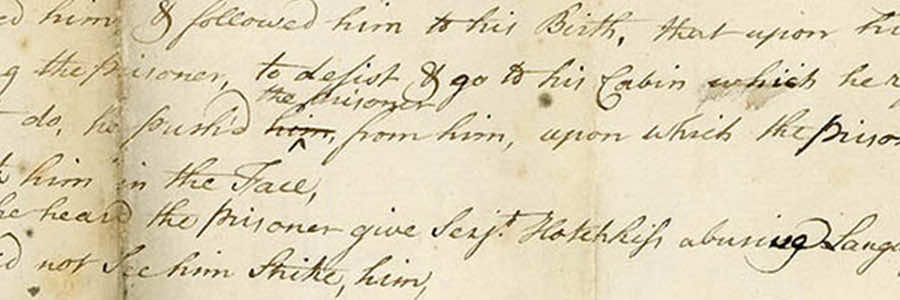 ed him & followed him to his Birth, that upon
the prisoner, to desist & go to his Cabin which he
the prisoner
do, he push'd him, from him, upon which the prison
him in the Face,
he heard the prisoner give Serjt. Hotchkiss abusing Langu
d not See him Strike, him,